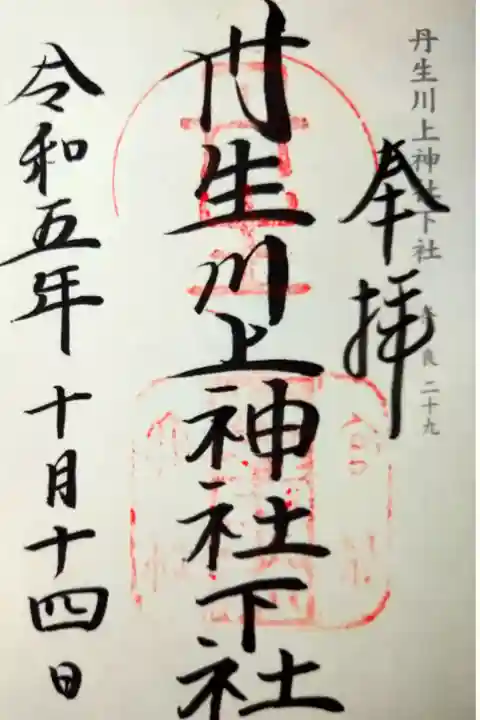 丹生川上神社下社 奈良 二十九
奉拝
丹生川上神社下社
令和五年 十月十四日